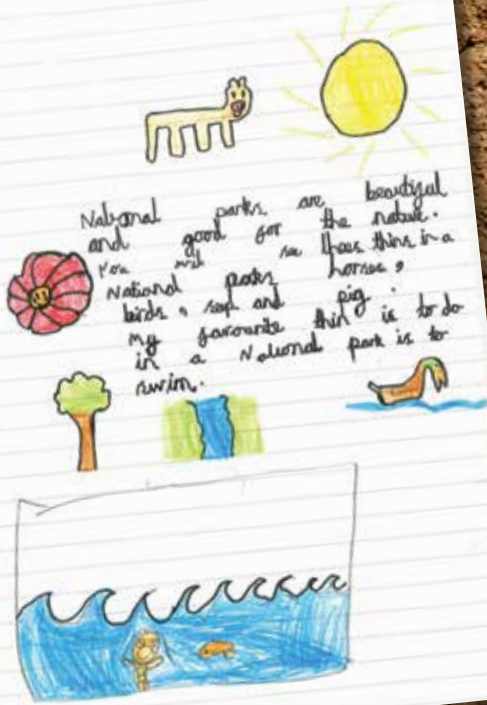 National parks are beautiful
and good for the nature.
You will see thees thins in a
National parks horses,
birds, seep and pig.
My favourite thin is to do
in a National park is to
swim.